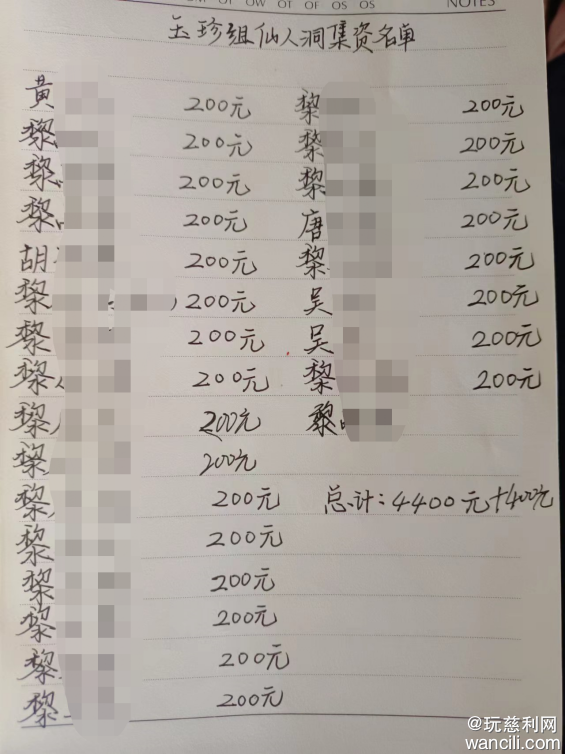 OT OF OS OS NOTES
玉珍组仙人洞集资名单
黄 200元 黎 200元
黎 200元 黎 200元
黎 200元 黎 200元
黎 200元 唐 200元
胡 200元 黎 200元
黎 200元 吴 200元
黎 200元 吴 200元
黎 200元 黎 200元
黎 200元 黎
黎 200元
黎 200元 总计:4400元+400元
黎 200元
黎 200元
黎 200元
黎 200元
黎 200元
@玩慈利网
wancili.com